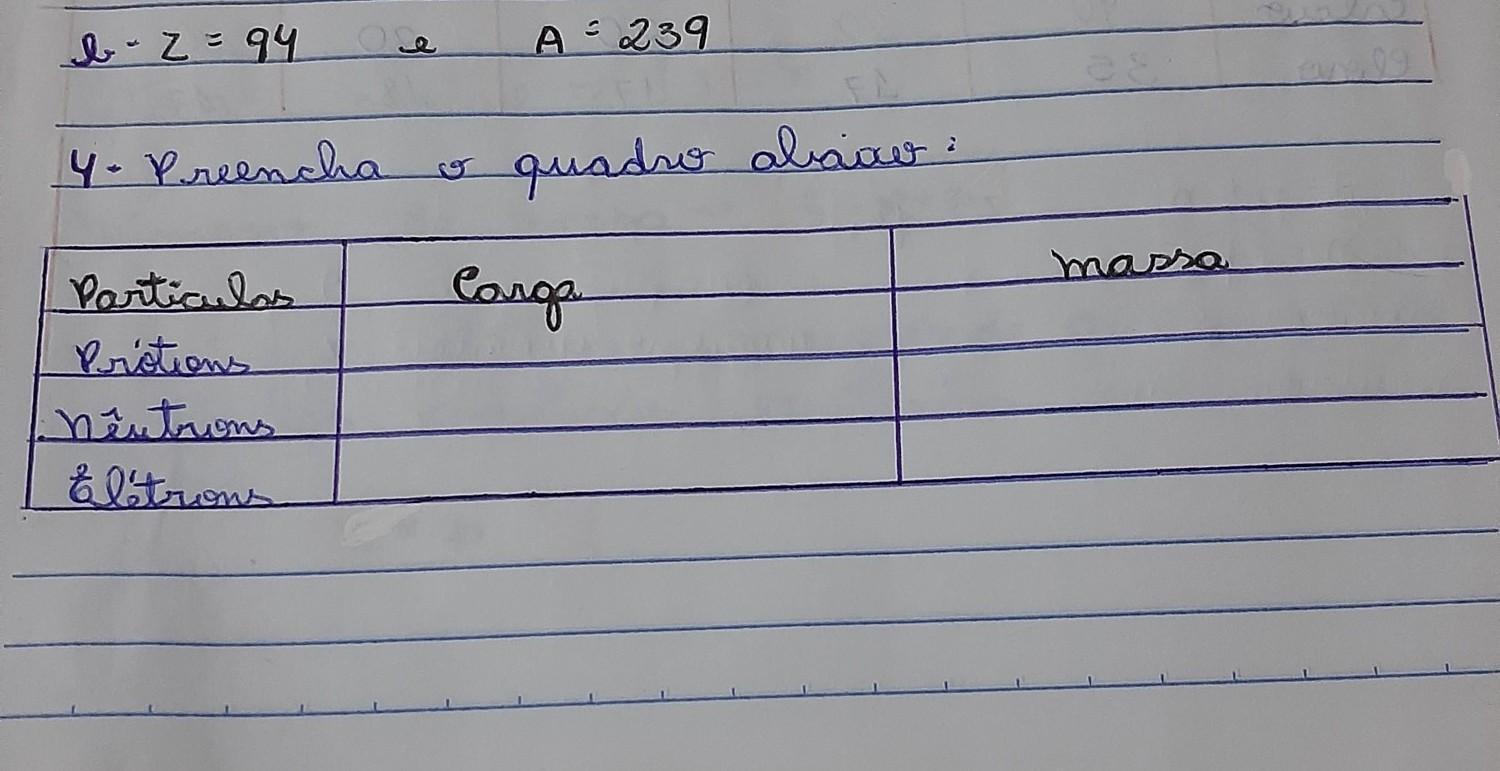 b - Z = 94 e A = 239
4 - Preencha o quadro abaixo:
Partículas Carga massa
Prótons
Nêutrons
Elétrons